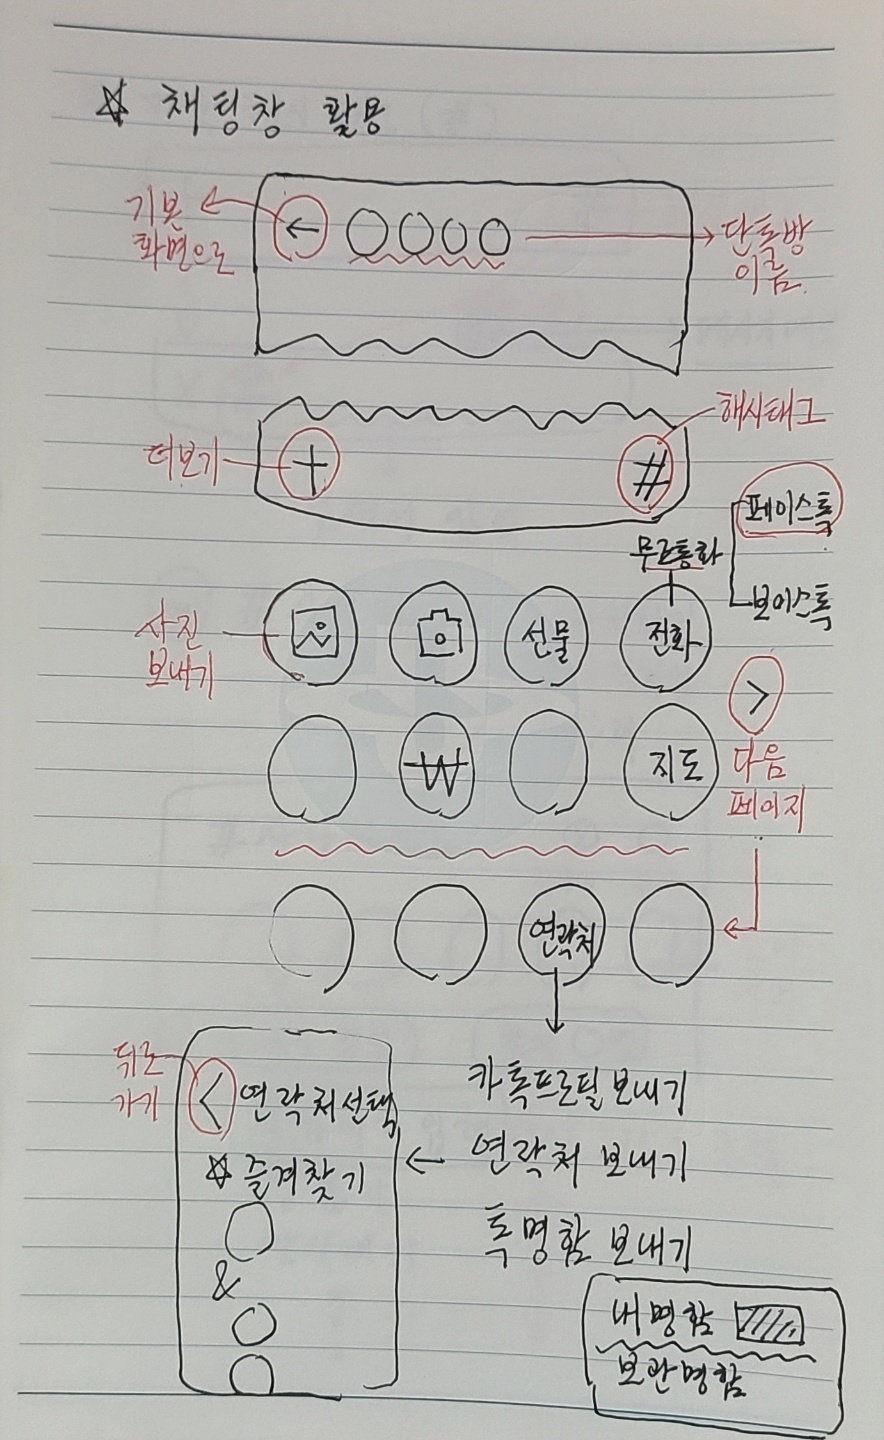 ☆ 채팅창 활용
기본
화면으로
← ○○○○
단톡방
이름
더보기
+
#
해시태그
페이스톡
보이스톡
무료통화
사진
보내기
선물
전화
>
다음
페이지
₩
지도
연락처
뒤로
가기
< 연락처선택
☆ 즐겨찾기
&
카톡프로필 보내기
← 연락처 보내기
톡명함 보내기
내명함
보관명함